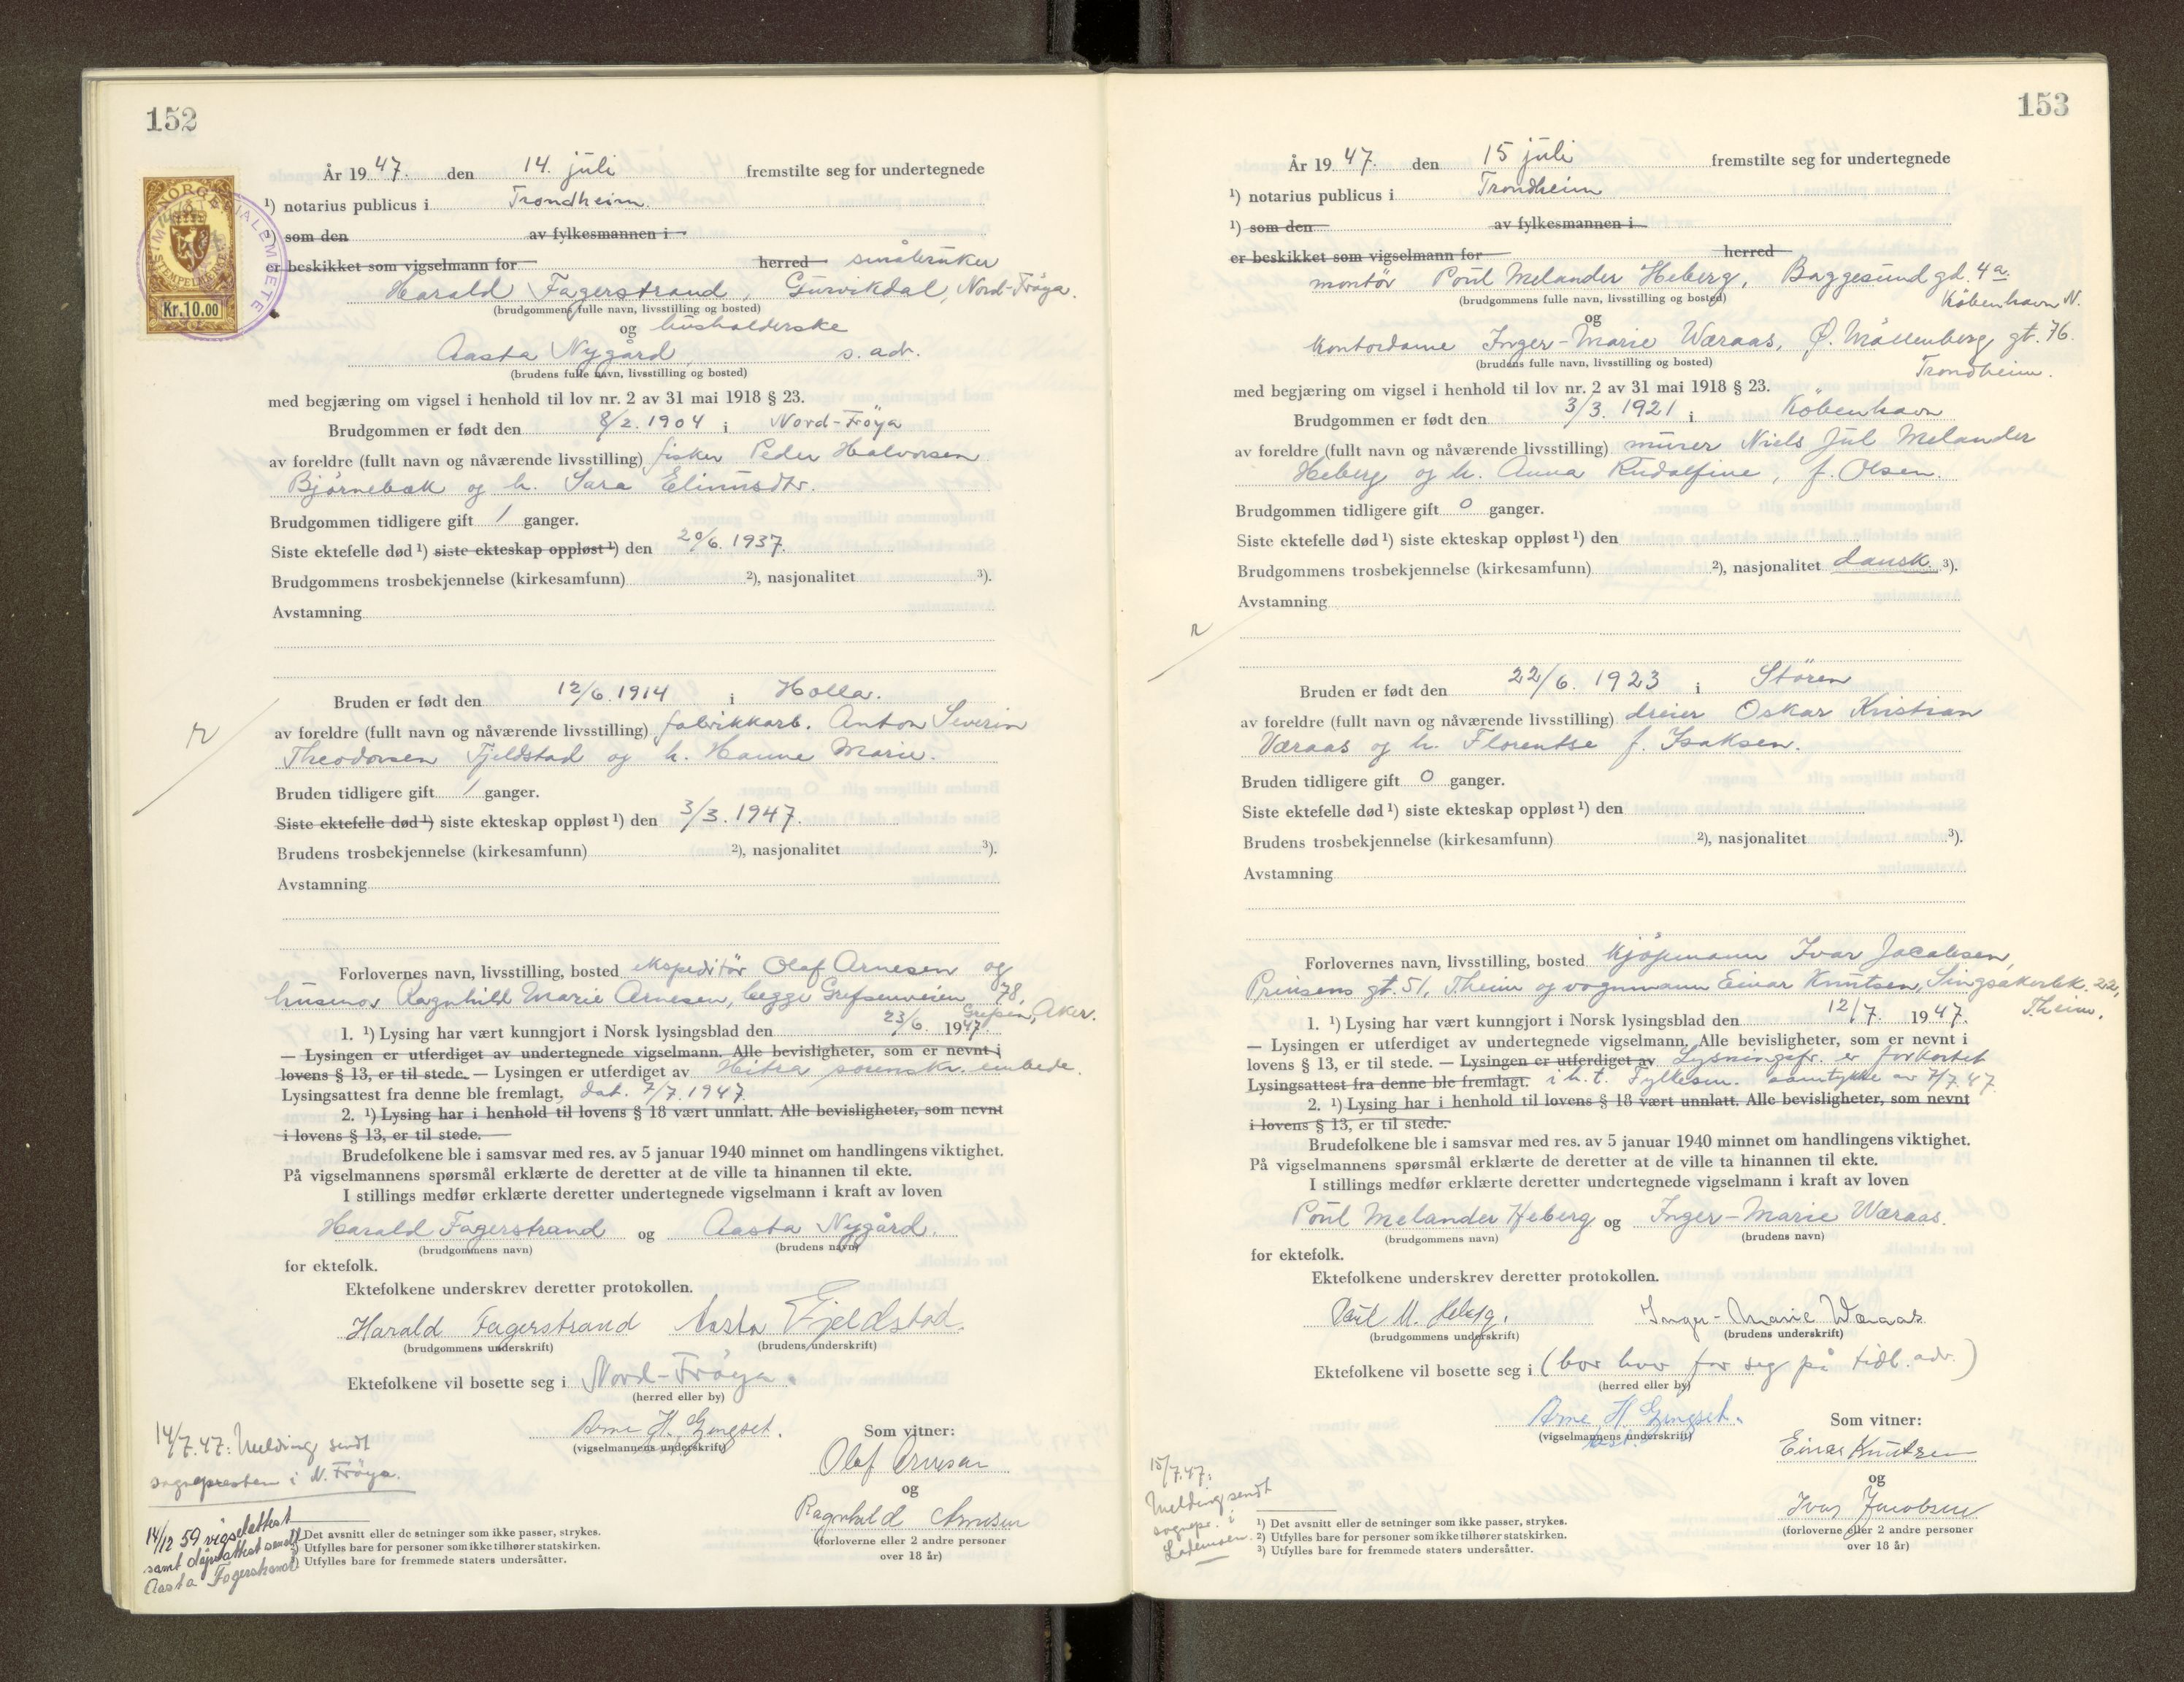 152
År 1947. den 14. juli fremstilte seg for undertegnede
¹) notarius publicus i Trondheim.
¹) som den av fylkesmannen i
er beskikket som vigselmann for herred småbruker
Harald Fagerstrand, Gurvikdal, Nord-Fröya.
(brudgommens fulle navn, livsstilling og bosted)
og husholderske
Aasta Nygård s. adr.
(brudens fulle navn, livsstilling og bosted)
med begjæring om vigsel i henhold til lov nr. 2 av 31 mai 1918 § 23.
Brudgommen er født den 8/2. 1904 i Nord-Fröya
av foreldre (fullt navn og nåværende livsstilling) fisker Peder Halvorsen
Bjørnebæk og h. Sara Elinusdtr.
Brudgommen tidligere gift 1 ganger.
Siste ektefelle død ¹) siste ekteskap oppløst ¹) den 20/6. 1937.
Brudgommens trosbekjennelse (kirkesamfunn) ²), nasjonalitet ³).
Avstamning
Bruden er født den 12/6. 1914 i Holla.
av foreldre (fullt navn og nåværende livsstilling) fabrikkarb. Anton Severin
Theodorsen Fjeldstad og h. Hanne Marie.
Bruden tidligere gift 1 ganger.
Siste ektefelle død ¹) siste ekteskap oppløst ¹) den 3/3. 1947.
Brudens trosbekjennelse (kirkesamfunn) ²), nasjonalitet ³).
Avstamning
Forlovernes navn, livsstilling, bosted ekspeditør Olaf Arnesen og
husmor Ragnhild Marie Arnesen, begge Grefsenveien 78,
Grefsen, Aker.
1. ¹) Lysing har vært kunngjort i Norsk lysingsblad den 23/6. 1947.
— Lysingen er utferdiget av undertegnede vigselmann. Alle bevisligheter, som er nevnt i
lovens § 13, er til stede. — Lysingen er utferdiget av Hitra sorenskr. embede.
Lysingsattest fra denne ble fremlagt, dat. 7/7. 1947.
2. ¹) Lysing har i henhold til lovens § 18 vært unnlatt. Alle bevisligheter, som nevnt
i lovens § 13, er til stede.
Brudefolkene ble i samsvar med res. av 5 januar 1940 minnet om handlingens viktighet.
På vigselmannens spørsmål erklærte de deretter at de ville ta hinannen til ekte.
I stillings medfør erklærte deretter undertegnede vigselmann i kraft av loven
Harald Fagerstrand og Aasta Nygård.
(brudgommens navn) (brudens navn)
for ektefolk.
Ektefolkene underskrev deretter protokollen.
Harald Fagerstrand Aasta Fjeldstad.
(brudgommens underskrift) (brudens underskrift)
Ektefolkene vil bosette seg i Nord-Fröya.
(herred eller by)
Arne H. Gengset.
(vigselmannens underskrift)
Som vitner:
Olaf Arnesen
og
Ragnhild Arnesen
(forloverne eller 2 andre personer
over 18 år)
14/7. 47: Melding sendt
sognepresten i N. Fröya.
14/12 59 vigselattest
samt dåpsattest sendt
Aasta Fagerstrand
¹) Det avsnitt eller de setninger som ikke passer, strykes.
²) Utfylles bare for personer som ikke tilhører statskirken.
³) Utfylles bare for fremmede staters undersåtter.
NORGE
STEMPELMERKE
Kr. 10.00
153
År 1947. den 15 juli fremstilte seg for undertegnede
¹) notarius publicus i Trondheim
¹) som den av fylkesmannen i
er beskikket som vigselmann for herred
montör Poul Melander Heberg, Baggesund gd. 4 a.
København N.
(brudgommens fulle navn, livsstilling og bosted)
og
kontordame Inger-Marie Wæraas, Ø. Møllenberg gt. 76.
Trondheim.
(brudens fulle navn, livsstilling og bosted)
med begjæring om vigsel i henhold til lov nr. 2 av 31 mai 1918 § 23.
Brudgommen er født den 3/3. 1921 i København
av foreldre (fullt navn og nåværende livsstilling) murer Niels Jul Melander
Heberg og h. Anna Rudolfine, f. Olsen.
Brudgommen tidligere gift 0 ganger.
Siste ektefelle død ¹) siste ekteskap oppløst ¹) den
Brudgommens trosbekjennelse (kirkesamfunn) ²), nasjonalitet dansk. ³).
Avstamning
Bruden er født den 22/6. 1923 i Stören
av foreldre (fullt navn og nåværende livsstilling) dreier Oskar Kristian
Væraas og h. Florentse f. Isaksen.
Bruden tidligere gift 0 ganger.
Siste ektefelle død ¹) siste ekteskap oppløst ¹) den
Brudens trosbekjennelse (kirkesamfunn) ²), nasjonalitet ³).
Avstamning
Forlovernes navn, livsstilling, bosted kjøpmann Ivar Jacobsen,
Prinsens gt. 51, Theim og vognmann Einar Knutsen, Singsakerbk. 22,
Theim.
1. ¹) Lysing har vært kunngjort i Norsk lysingsblad den 12/7. 1947.
— Lysingen er utferdiget av undertegnede vigselmann. Alle bevisligheter, som er nevnt i
lovens § 13, er til stede. — Lysingen er utferdiget av Lysningsfr. er forkortet
Lysingsattest fra denne ble fremlagt. i h. t. Fylkesm. samtykke av 7/7. 47.
2. ¹) Lysing har i henhold til lovens § 18 vært unnlatt. Alle bevisligheter, som nevnt
i lovens § 13, er til stede.
Brudefolkene ble i samsvar med res. av 5 januar 1940 minnet om handlingens viktighet.
På vigselmannens spørsmål erklærte de deretter at de ville ta hinannen til ekte.
I stillings medfør erklærte deretter undertegnede vigselmann i kraft av loven
Poul Melander Heberg og Inger-Marie Wæraas.
(brudgommens navn) (brudens navn)
for ektefolk.
Ektefolkene underskrev deretter protokollen.
Poul M. Heberg. Inger-Marie Wæraas
(brudgommens underskrift) (brudens underskrift)
Ektefolkene vil bosette seg i (bor hver for seg på tidl. adr.)
(herred eller by)
Arne H. Gengset.
(vigselmannens underskrift)
Som vitner:
Einar Knutsen
og
Ivar Jacobsen
(forloverne eller 2 andre personer
over 18 år)
15/7.47:
Melding sendt
sognepr. i
Lademoen.
¹) Det avsnitt eller de setninger som ikke passer, strykes.
²) Utfylles bare for personer som ikke tilhører statskirken.
³) Utfylles bare for fremmede staters undersåtter.